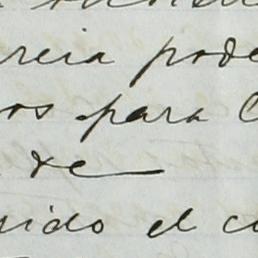 reia pode
os para
de
sido el co